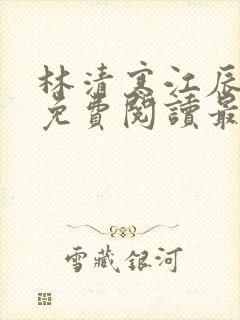 林清寒江辰
免費閱讀最
雪藏銀河